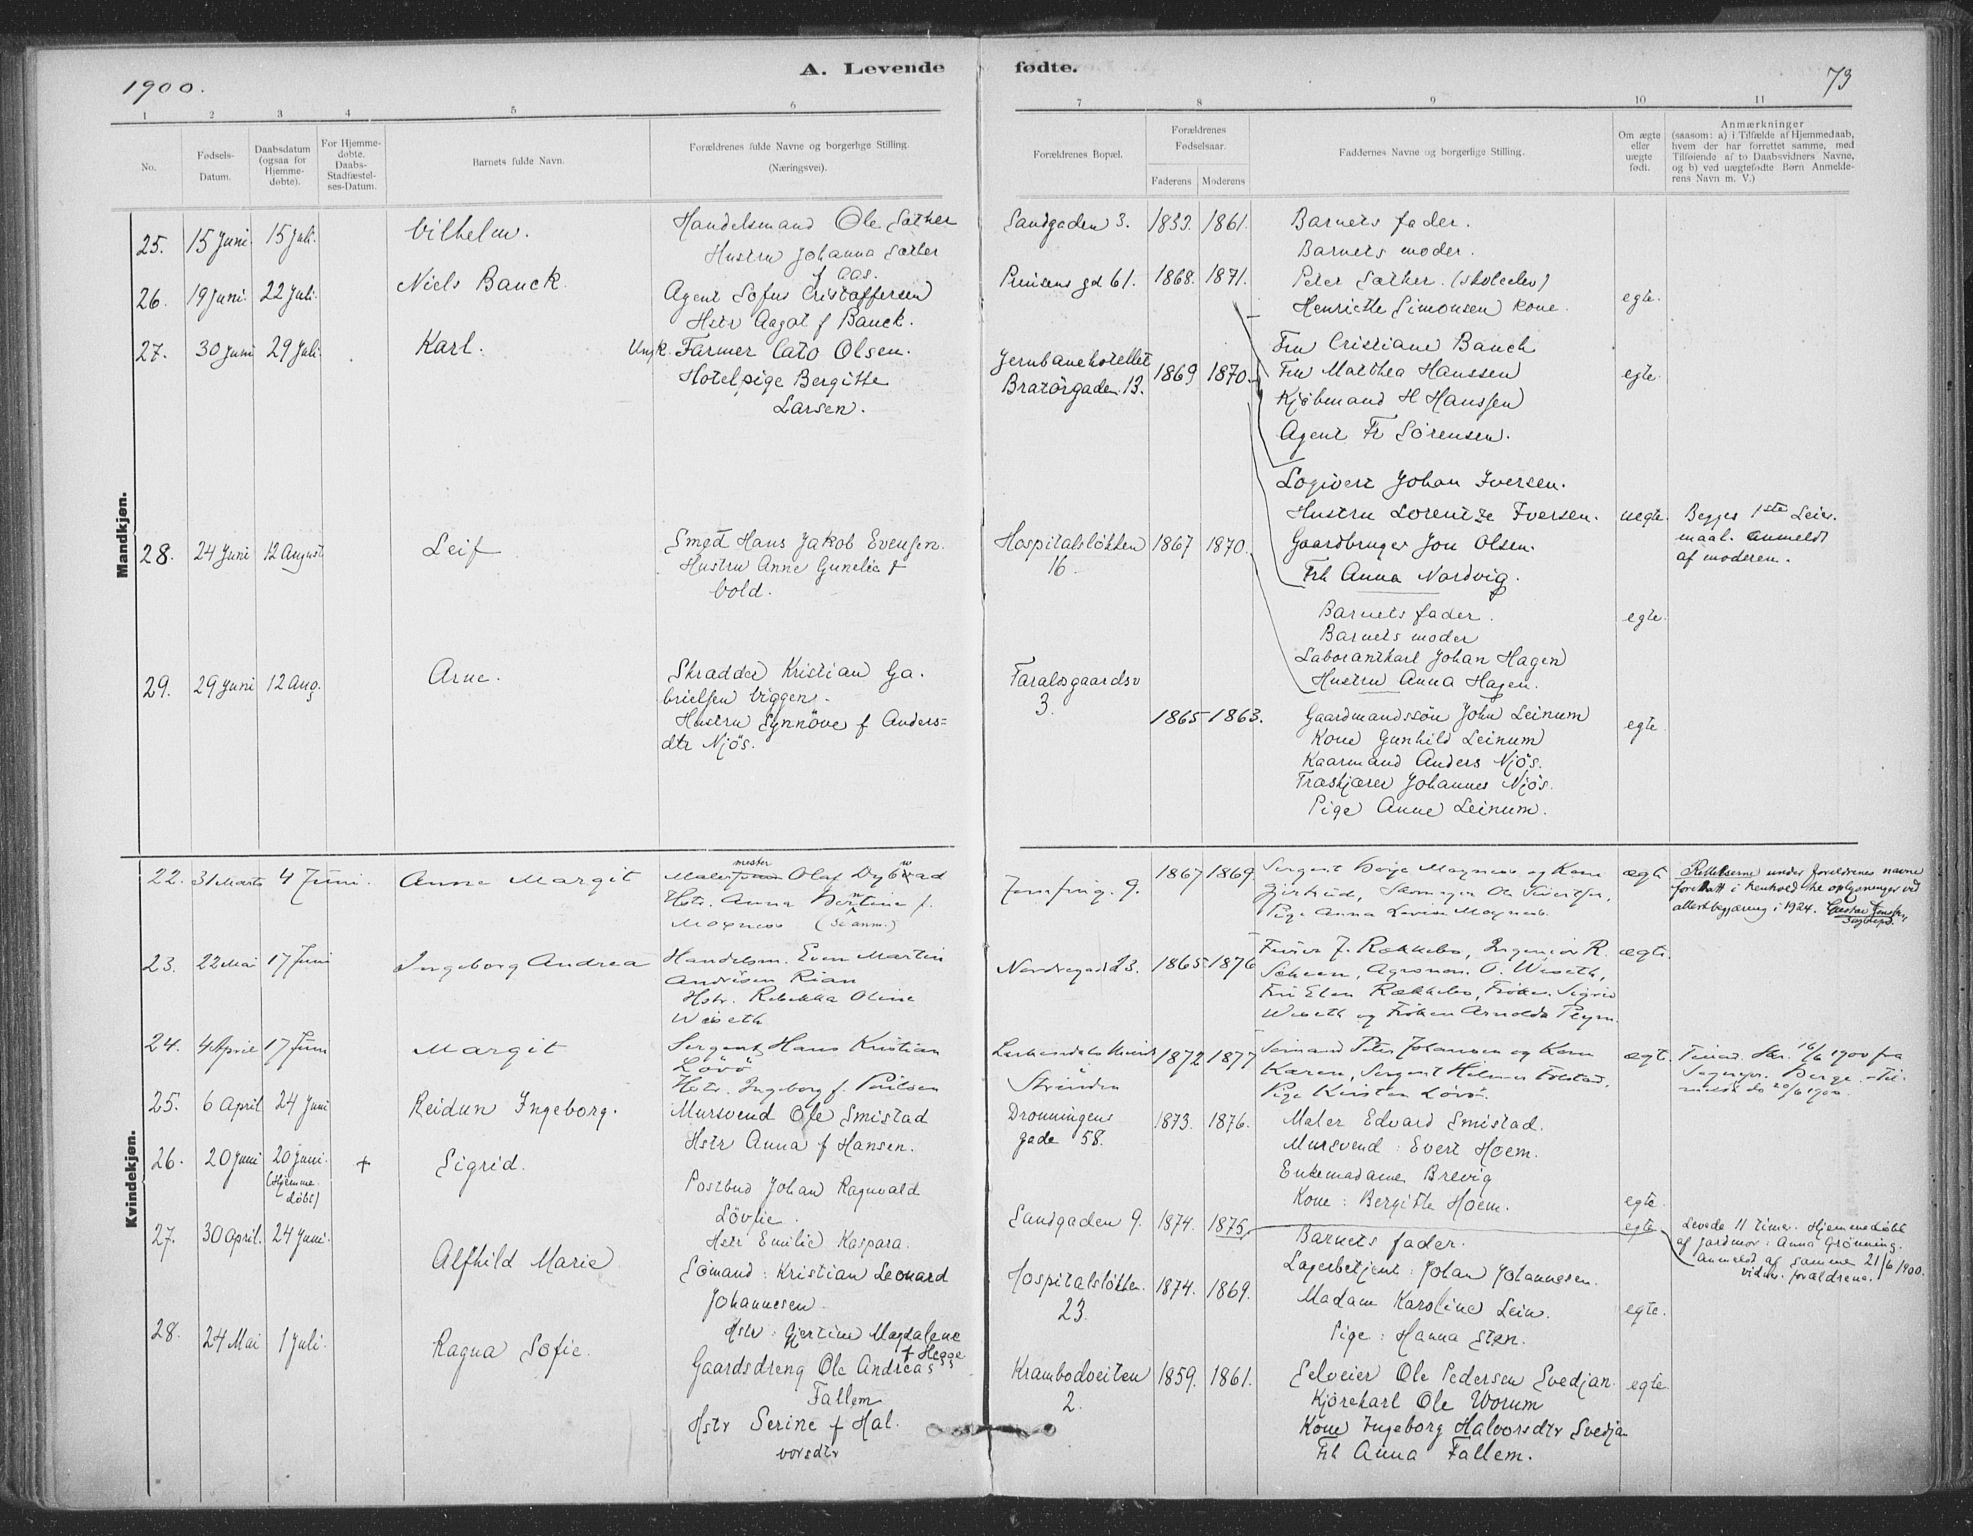 1900.
A. Levende fødte.
73
1 2 3 4 5 6 7 8 9 10 11
No.
Fødsels-
Datum.
Daabsdatum
(ogsaa for
Hjemme-
døbte).
For Hjemme-
døbte.
Daabs-
Stadfæstel-
ses-Datum.
Barnets fulde Navn.
Forældrenes fulde Navne og borgerlige Stilling.
(Næringsvei).
Forældrenes Bopæl.
Forældrenes
Fødselsaar.
Faderens Moderens
Faddernes Navne og borgerlige Stilling.
Om ægte
eller
uægte
født.
Anmærkninger
(saasom: a) i Tilfælde af Hjemmedaab,
hvem der har forrettet samme, med
Tilføiende af to Daabsvidners Navne,
og b) ved uægtefødte Børn Anmelde-
rens Navn m. V.)
Mandkjøn.
25. 15 Juni 15 Juli. Vilhelm.
Handelsmand Ole Sæther
Hustru Johanna Sæther
f Aas.
Sandgaden 3. 1853. 1861.
Barnets fader.
Barnets moder.
Peter Sæther. (skoleelev)
Henriette Simonsen kone.
egte.
26. 19 Juni. 22 Juli. Niels Bauck.
Agent Sofus Cristoffersen
Hstr Aagot f Bauck.
gd 61. 1868. 1871.
Fru Cristiane Bauck
Fru Marthea Hanssen
Kjøbmand H Hanssen
Agent Fr Sørensen.
egte.
27. 30 Juni 29 Juli. Karl.
Ungk. Farmer Cato Olsen.
Hotelpige Bergitte
Larsen.
Jernbanehotellet
Bratørgaden 13. 1869 1870.
Logivert Johan Iversen.
Hustru Lorentze Iversen.
Gaardbruger Jon Olsen.
Frk Anna Nordvig.
uegte.
Begges 1ste Leier-
maal. Anmeldt
af moderen.
28. 24 Juni 12 August Leif
Smed Hans Jakob Evensen.
Hustru Anne Gunelie f
Vold.
Hospitalsløkken
16. 1867 1870.
Barnets fader.
Barnets moder
Laborantkarl Johan Hagen
Hustru Anna Hagen.
egte.
29. 29 Juni 12 Aug. Arne.
Skrædder Kristian Ga-
brielsen Viggen.
Hustru Synnöve f Anders=
dtr Njös.
3. 1865 1863.
Gaardmandssøn John Leinum
Kone Gunhild Leinum
Kaarmand Anders Njös.
Træskjærer Johannes Njös.
Pige Anne Leinum.
egte.
Kvindekjøn.
22. 31 Marts 4 Juni. Anna Margit
mester Olaf
Hstr. Anna f.
Moxness
9. 1867 1869
Sergent Moxness og Kone
Pige Anna Moxness.
ægte
Rettelserne under forældrenes navne
foretatt i henhold til oplysninger ved
attestbegjæring i 1924.
23. 22 Mai 17 Juni Ingeborg Andrea
Handelsm. Even Martin
Andrésen Rian
Hstr. Rebekka Oline
Wiseth
Nordregad 23. 1865 1876
J. Rækkebo, Ingeniör R.
Agronom. O. Wiseth,
Frk Elen Rækkebo, Fröken Sigrid
Wiseth og Fröken Arnolda
ægte.
24. 4 April 17 Juni Margit
Sergent Hans Kristian
Lövö
Hstr. Ingeborg f. Paulsen
Stranden 1872 1877
Sömand Peter Johansen og Kone
Karen, Sergent
Pige Kirsten Lövö.
ægte.
16/6 1900 fra
20/6 1900.
25. 6 April 24 Juni Reidun Ingeborg.
Mursvend Ole Smistad
Hstr Anna f Hansen.
Dronningens
gade 58. 1873. 1876.
Maler Edvard Smistad.
Mursvend: Evert Hoem.
Enkemadame Brevig
Kone: Bergitte Hoem.
egte.
26. 20 Juni 20 Juni.
(Hjemme-
døbt)
+ Sigrid.
Postbud Johan Ragnvald
Lövlie.
Hstr Emilie Kaspara.
Sandgaden 9. 1874. 1875.
egte
Levede 11 timer. Hjemmedøbt
af jordmor: Anna Grønning.
Anmeldt af samme 21/6 1900.
vidner. forældrene.
27. 30 April. 24 Juni. Alfhild Marie
Sömand: Kristian Leonard
Johannesen.
Hstr: Gjertine Magdalene
f Hegge
Hospitalsløkken.
23. 1874. 1869.
Barnets fader.
Lagerbetjent: Johan Johannesen.
Madam Karoline Lein.
Pige: Hanna Sten.
egte.
28. 24 Mai 1 Juli. Ragna Sofie.
Gaardsdreng Ole Andreas
Fallem
Hstr Serine f Hal-
vorsdtr
Krambodveiten
2. 1859. 1861.
Selveier Ole Pedersen Svedjan.
Kjørekarl Ole Worum
Kone Ingeborg Halvorsdtr Svedjan
Frk Anna Fallem.
egte.